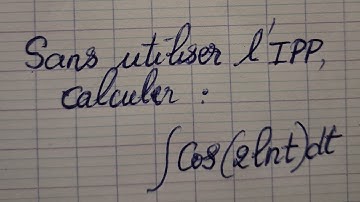 Sans utiliser l'IPP,
calculer :
∫ Cos(2lnt)dt